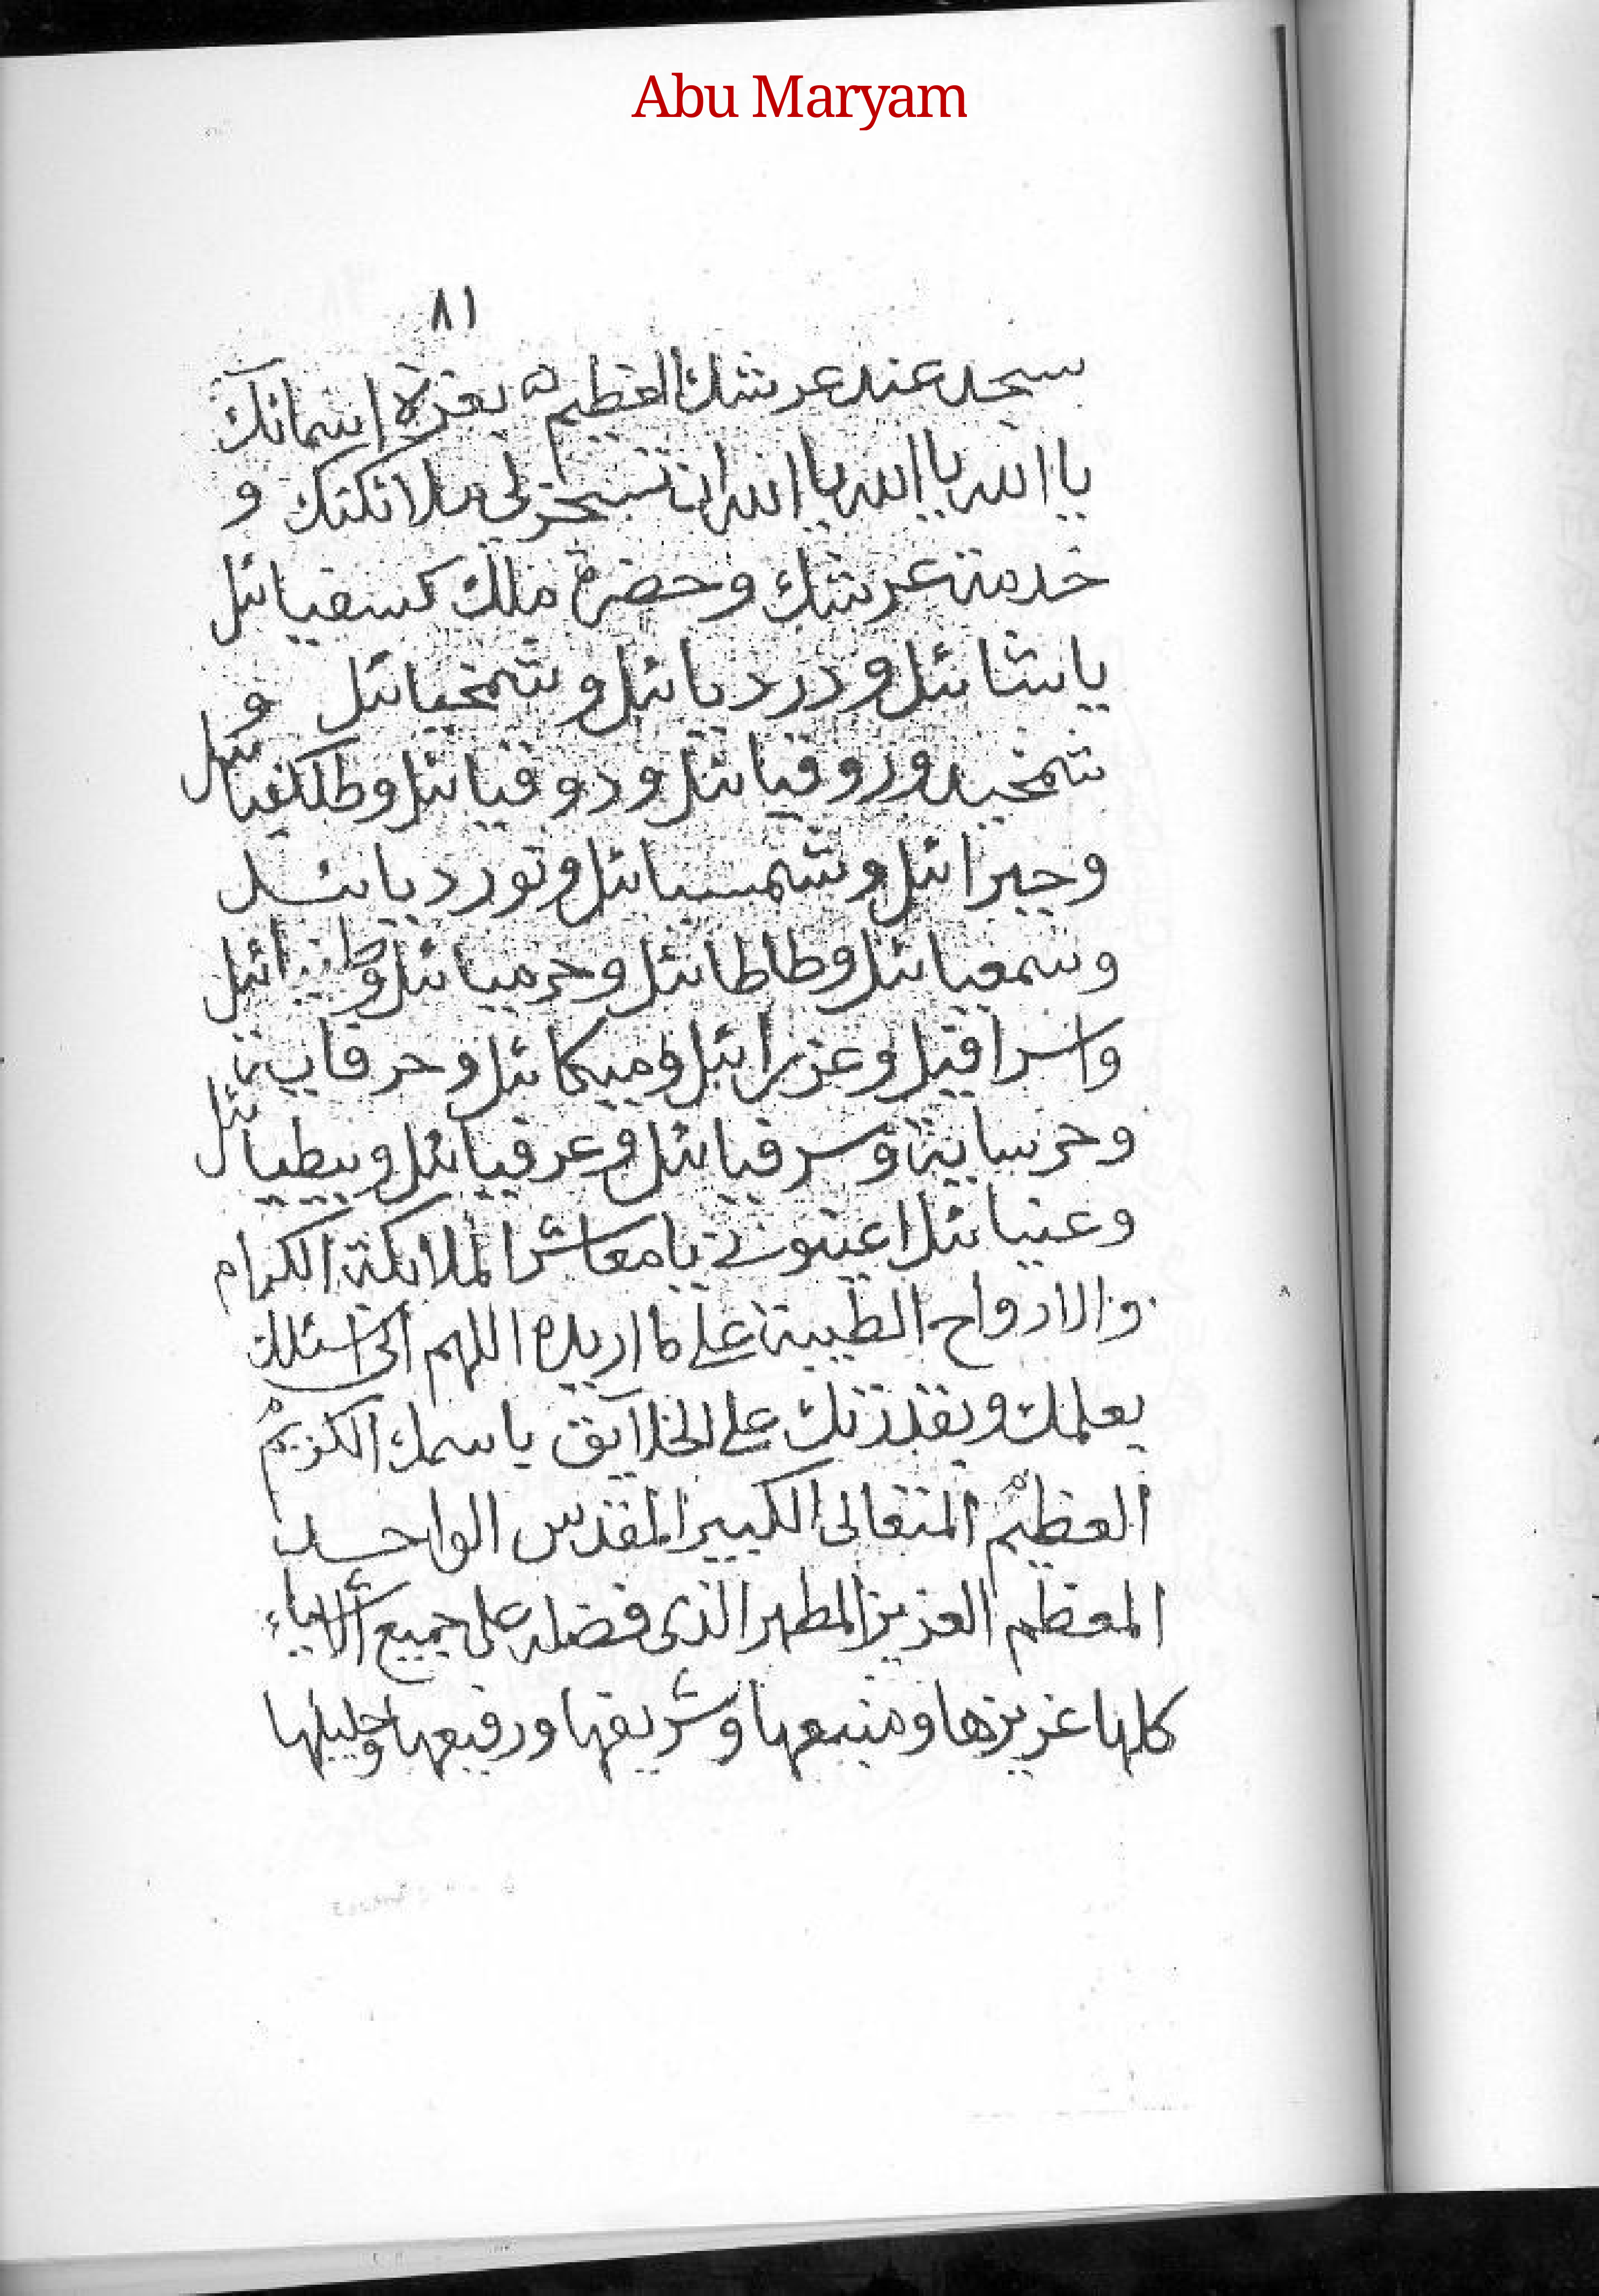 Abu Maryam
٨١
سجد عند عرشك العظيم بعزة إسمائك
يا الله يا الله يا الله ان تسخر لي ملائكتك و
خدمة عرشك وحضرة ملك كسفيائل
ياشائل ودرديائل وشمخيائل و
شمخيد وروقيائل ودوقيائل وطلكفيائل
وجبرائل وشمسائل ونورديائل
وسمعيائل وطاطائل وحرميائل
واسرافيل وعزرائيل وميكائل وحرفاييه
وحرسايية وسرفيائل وعرفيائل وبيطيائل
وعنيائل اعينوني يا معاشر الملائكة الكرام
والارواح الطيبة على ما اريده اللهم اني اسئلك
بعلمك وبقدرتك على الخلايق باسمك الكريم
العظيم المتعالى الكبير المقدس الواحد
المعظم العزيز المطهر الذى فضله على جميع
كلها عزيزها ومنيعها وشريفها ورفيعها وجليلها